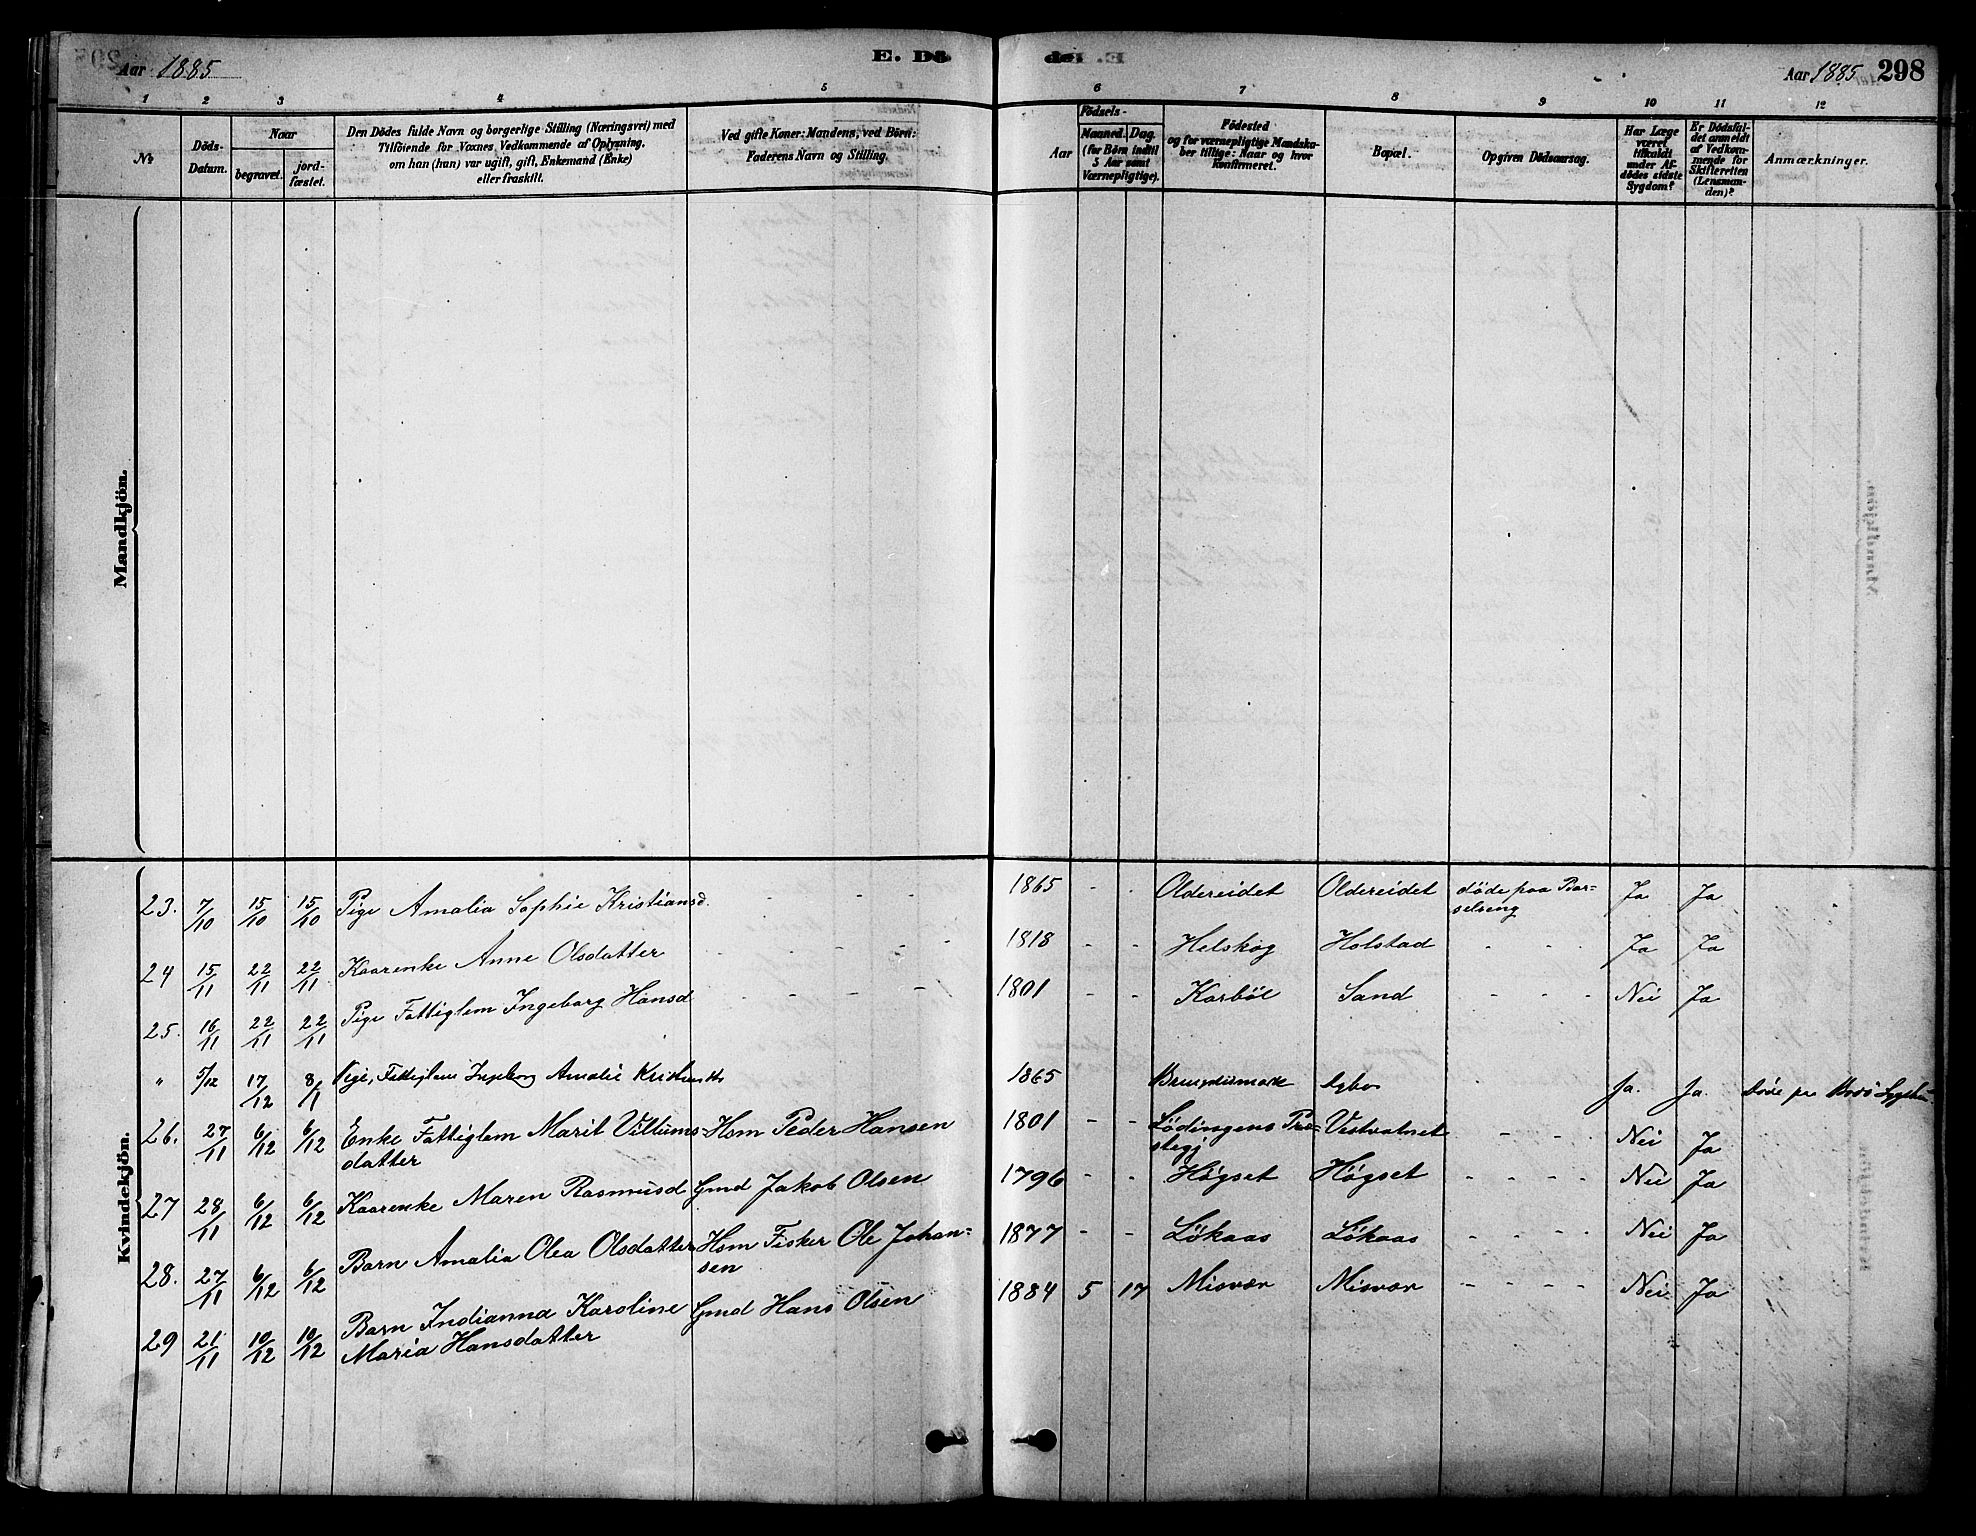 Aar 1885
E. Dö
de.
Aar 1885 298
1 2 3 4 5 6 7 8 9 10 11 12
No
Döds-
Datum.
Naar
begravet.
jord-
fæstet.
Den Dödes fulde Navn og borgerlige Stilling (Næringsvei) med
Tilföiende for Voxnes Vedkommende af Oplysning,
om han (hun) var ugift, gift, Enkemand (Enke)
eller fraskilt.
Ved gifte Koner: Mandens, ved Börn:
Faderens Navn og Stilling.
Födsels-
Aar
Maaned. Dag.
(for Börn indtil
5 Aar samt
Værnepligtige).
Födested
og for værnepligtige Mandska-
ber tillige: Naar og hvor
konfirmeret.
Bopæl.
Opgiven Dödsaarsag.
Har Læge
været
tilkaldt
under Af-
dödes sidste
Sygdom?
Er Dödsfal-
det anmeldt
af Vedkom-
mende for
Skifteretten
(Lensman-
den)?
Anmærkninger.
Mandkjön.
Kvindekjön.
23. 7/10 15/10 15/10 Pige Amalia Sophie Kristiansd. - - - 1865 - - Oldereidet Oldereidet döde paa Bar=
selseng Ja Ja
24 15/11 22/11 22/11 Kaarenke Anne Olsdatter - - - 1818 - - Helskog Holstad - - Ja Ja
25. 16/11 22/11 22/11 Pige Fattiglem Ingeborg Hansd - - - 1801 - - Karböl Sand - - - Nei Ja
" 5/12 17/12 8/1 Pige, Fattiglem Ingeborg Amalie 1865 Ja. Ja. Döde paa
26. 27/11 6/12 6/12 Enke Fattiglem Marit Villums-
datter Hsm Peder Hansen 1801 - - Lödingens Præ=
stegj Vestvatnet - - - Nei Ja
27 28/11 6/12 6/12 Kaarenke Maren Rasmusd Gmd Jakob Olsen 1796 - - Högset Högset - - - - Nei Ja
28. 27/11 6/12 6/12 Barn Amalia Olea Olsdatter Hsm Fisker Ole Johan=
sen 1877 - - Lökaas Lökaas - - - - Nei Ja
29 21/11 10/12 10/12 Barn Indianna Karoline
Maria Hansdatter Gmd Hans Olsen 1884 5 17 Misvær Misvær - - - - Nei Ja